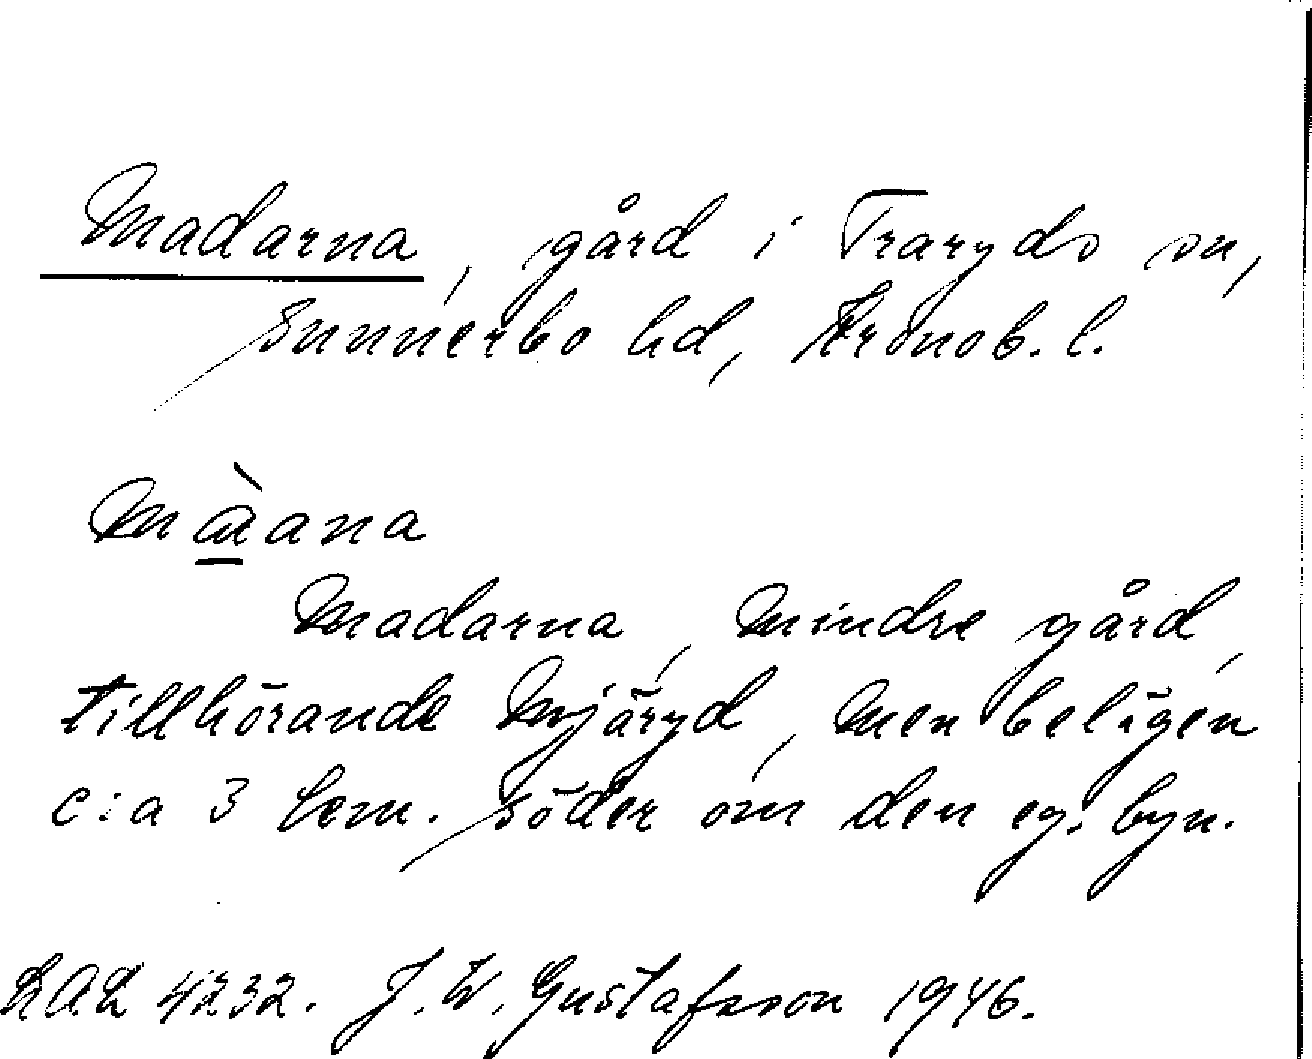 Madarna, gård i Traryds sn,
Sunnerbo hd, Kronob. l.
Madarna, mindre gård,
tillhörande Mjäryd, men belägen
c:a 3 km. söder om den eg. byn.
LAL 4232. J. W. Gustafsson 1946.